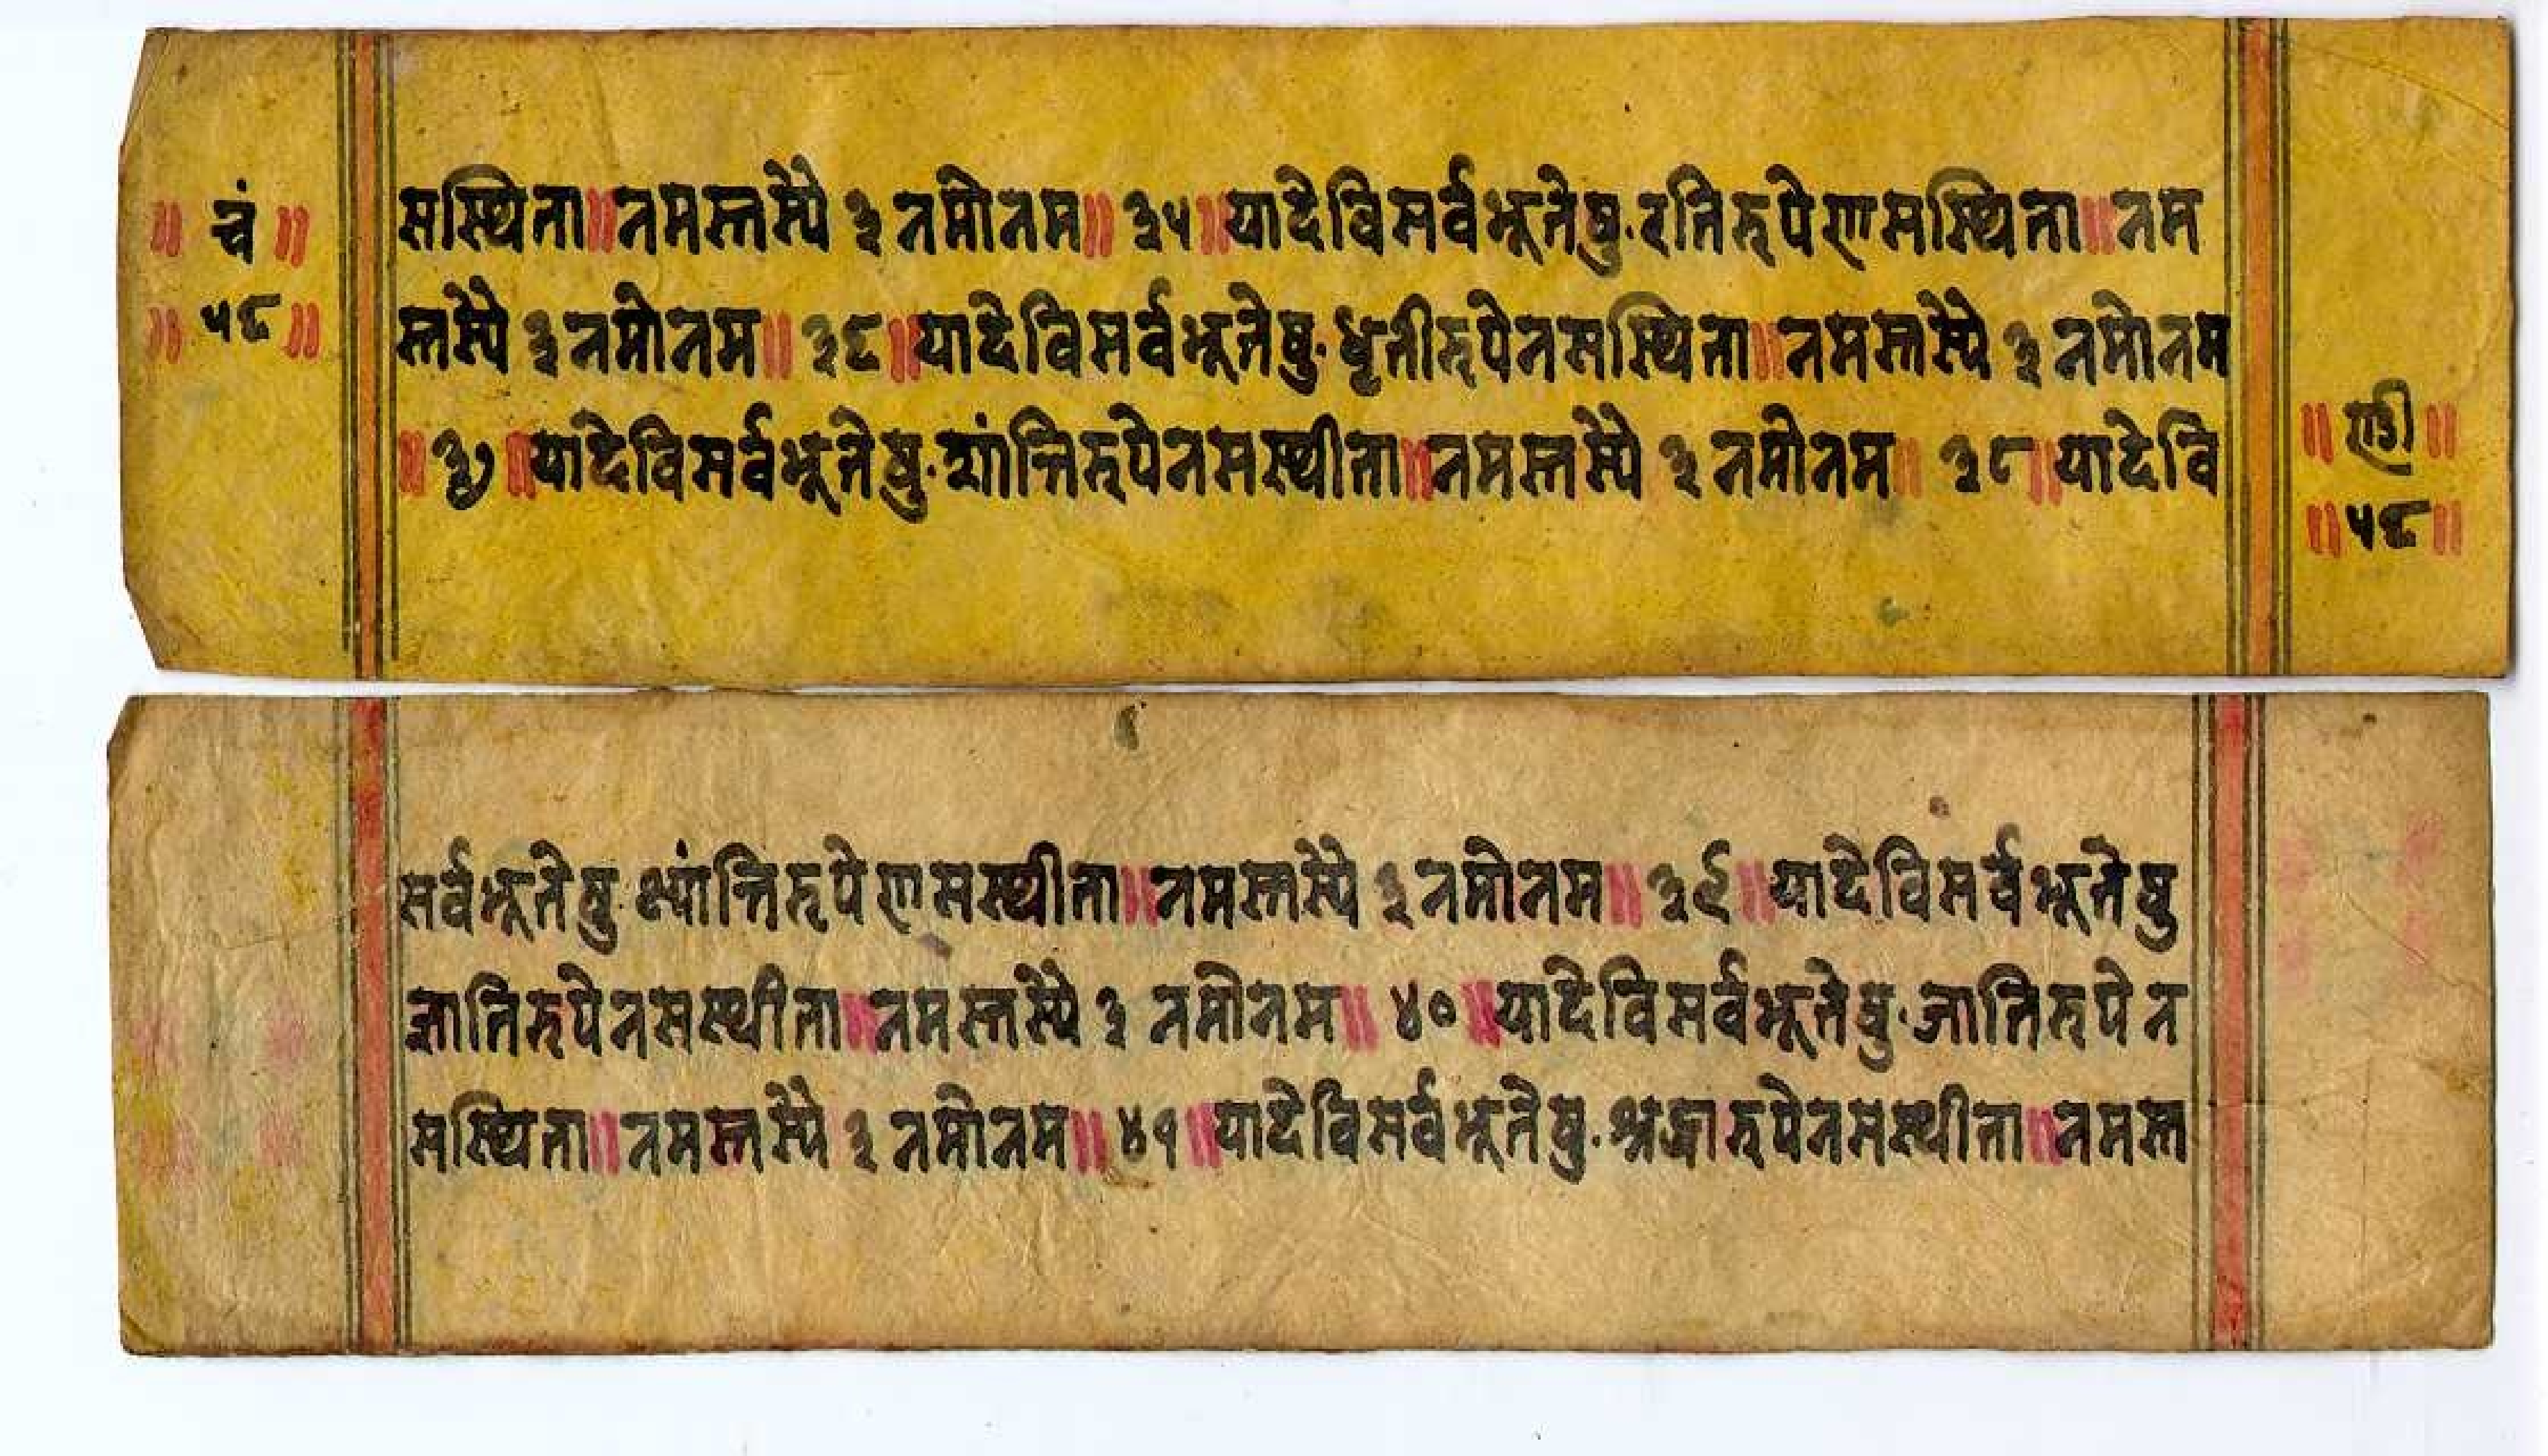 ॥ चं ॥
॥ ५६ ॥
सस्थिता॥नमस्तस्यै ३ नमोनम॥ ३५॥यादेविसर्वभूतेषु·रतिरुपेणसस्थिता॥नम
स्तस्यै ३ नमोनम॥ ३६॥यादेविसर्वभूतेषु·धृतीरुपेनसस्थिता॥नमस्तस्यै ३ नमोनम
॥ ३७ ॥यादेविसर्वभूतेषु·शांन्तिरुपेनसस्थीता॥नमस्तस्यै ३ नमोनम॥ ३८॥यादेवि
॥ ण्डी ॥
॥ ५६ ॥
सर्वभूतेषु·क्ष्यांन्तिरुपेणसस्थीता॥नमस्तस्यै ३ नमोनम॥ ३९॥यादेविसर्वभूतेषु
ज्ञातिरुपेनसस्थीता॥नमस्तस्यै ३ नमोनम॥ ४०॥यादेविसर्वभूतेषु·जातिरुपेन
सस्थिता॥नमस्तस्यै ३ नमोनम॥ ४१॥यादेविसर्वभूतेषु·श्रद्धारुपेनसस्थीता॥नमस्त